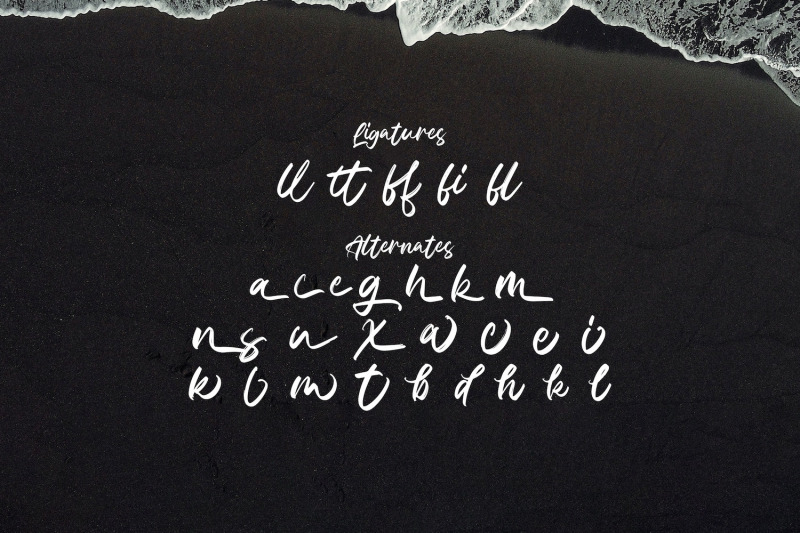 Ligatures
ll tt ff fi fl
Alternates
a c e g h k m
n s u x a c e i
k l m t b d h k l